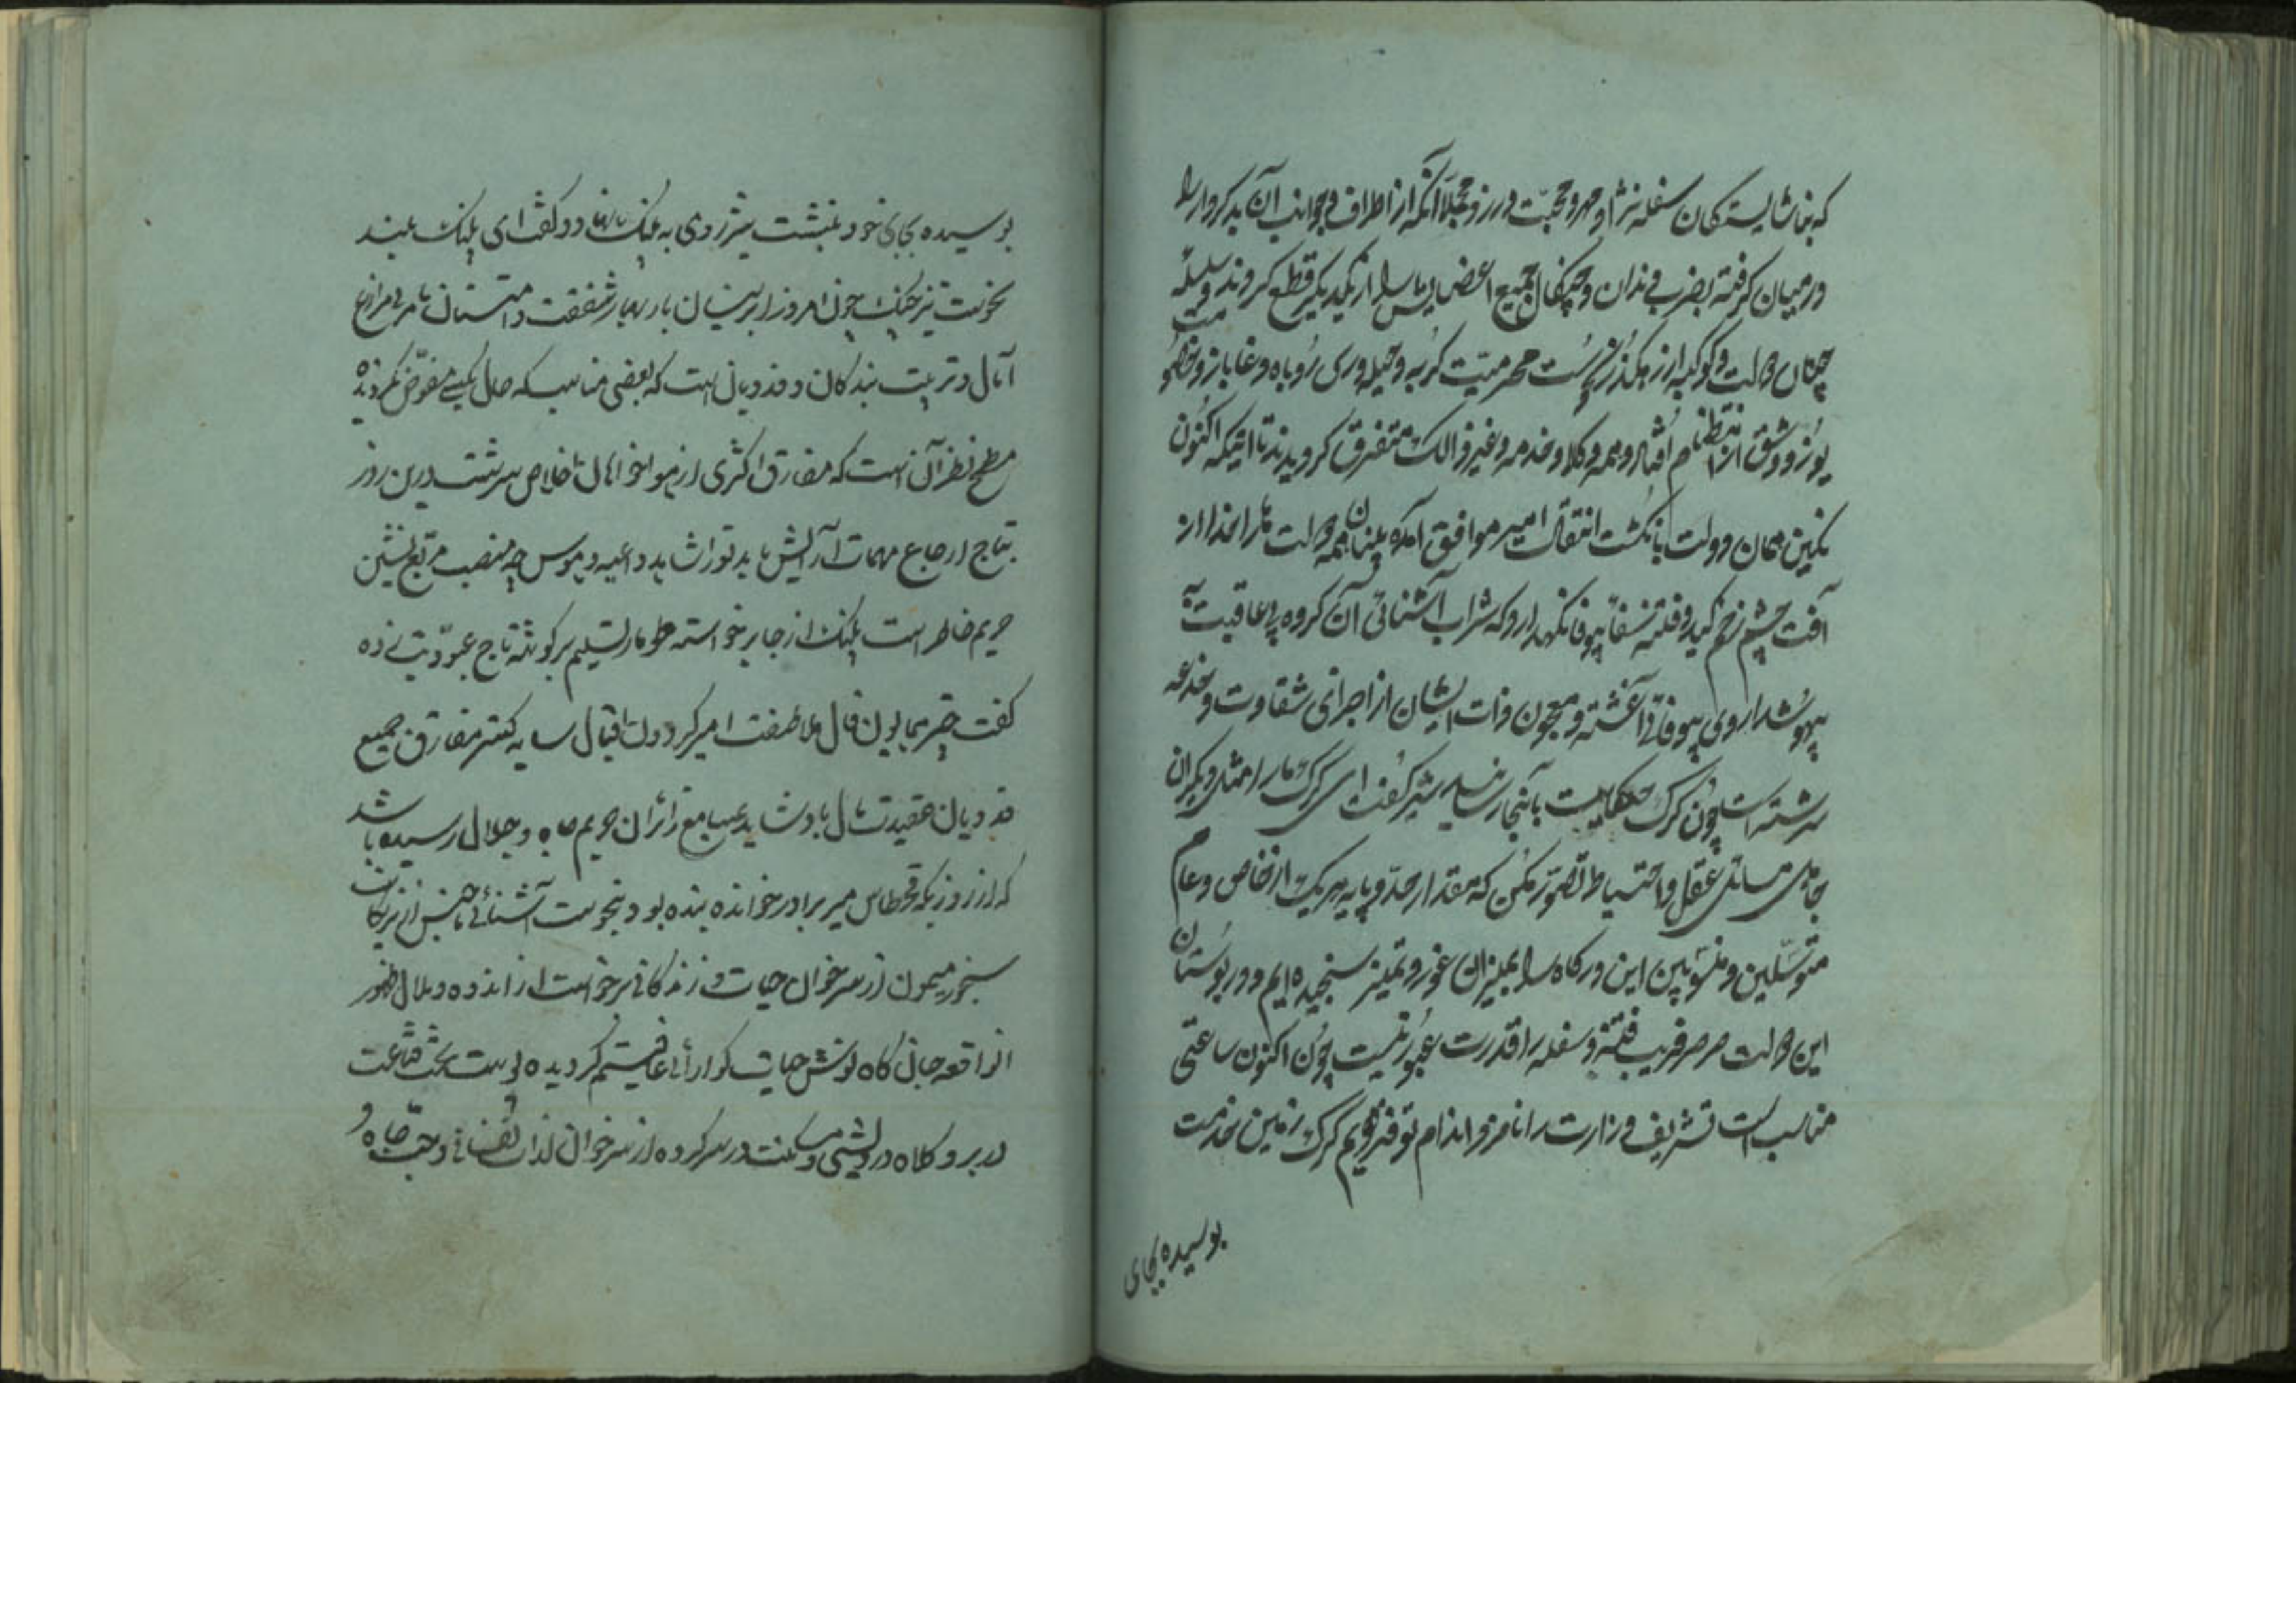 که بناشایستگان سفله نژاد مهر و محبت ورزد مجملا آنکه از اطراف و جوانب آن بدکردار را
در میان گرفته بضرب دندان و چنگال جمیع اعضایش را از یکدیگر قطع کردند و سلسله
چنان دولت و کوکبه از رهگذر محرمیت گربه و حیله وری روباه و دغابازی
یوز و وشق از انتظام افتاد و همه وکلا و خدمه و غیر ذالک متفرق گردیدند تا اینکه اکنون
نگین همان دولت بانگشت انتقال امیر موافق آمده همه دولت ما را خدا از
آفت چشم زخم کید و فتنه نگهدارد که شراب آشنائی آن گروه بی عاقبت به
بیهوشداروی بیوفائی آغشته و معجون ذات ایشان از اجزای شقاوت و خدعه
سرشته است چون گرگ حکایت بآنجا رسانید شیر گفت ای گرگ ما را مثل دیگران
جاهل مسائل عقل و احتیاط تصور مکن که مقدار حد و پایه هر یک از خاص و عام
متوسلین و منسوبین این درگاه را بمیزان غور و تمیز سنجیده ایم و در بوستان
این دولت صرصر فریب فتنه و سفله را قدرت عبور نیست چون اکنون ساعتی
مناسب است تشریف وزارت را نامزد اندام تو فرمودیم گرگ زمین خدمت
بوسیده بجای
بوسیده بجای خود بنشست شیر روی به پلنگ و گفت ای پلنگ بلند
نخوت تیز چنگ چون امروز ابر نیسان بار بهار شفقت و امتنان ما مزارع
آمال و تربیت بندگان و فدویان است که بعضی مناصب که حال بکسی مفوض نگردیده
مطمح نظر آن است که مفارق اکثری از هواخواهان اخلاص سرشت درین روز
بتاج ارجاع مهمات آرایش یابد تو را شاید داعیه و هوس چه منصب مربع نشین
حریم خاطر است پلنگ از جا برخواسته طومار تسلیم بر گوشه تاج عبودیت زده
گفت همایون فال ملاطفت امیر گردون اقبال سایه گستر مفارق جمیع
فدویان عقیدت مآل باد شاید بمسامع زائران حریم جاه و جلال رسیده باشد
که از روزیکه قحطاس میر برادر خوانده بنده بود بنحوست آشنائی ناجنس از نیرنگات
سنجور میمون از سر خوان حیات و زندگانی برخواست از اندوه و ملال ظهور
این واقعه جان کاه نوش حیات گوارائی عاقبتم گردیده پوست تخت قناعت
در بر و کلاه درویشی و مسکنت در سر کرده از سر خوان لذات نفسانی و حب جاه و